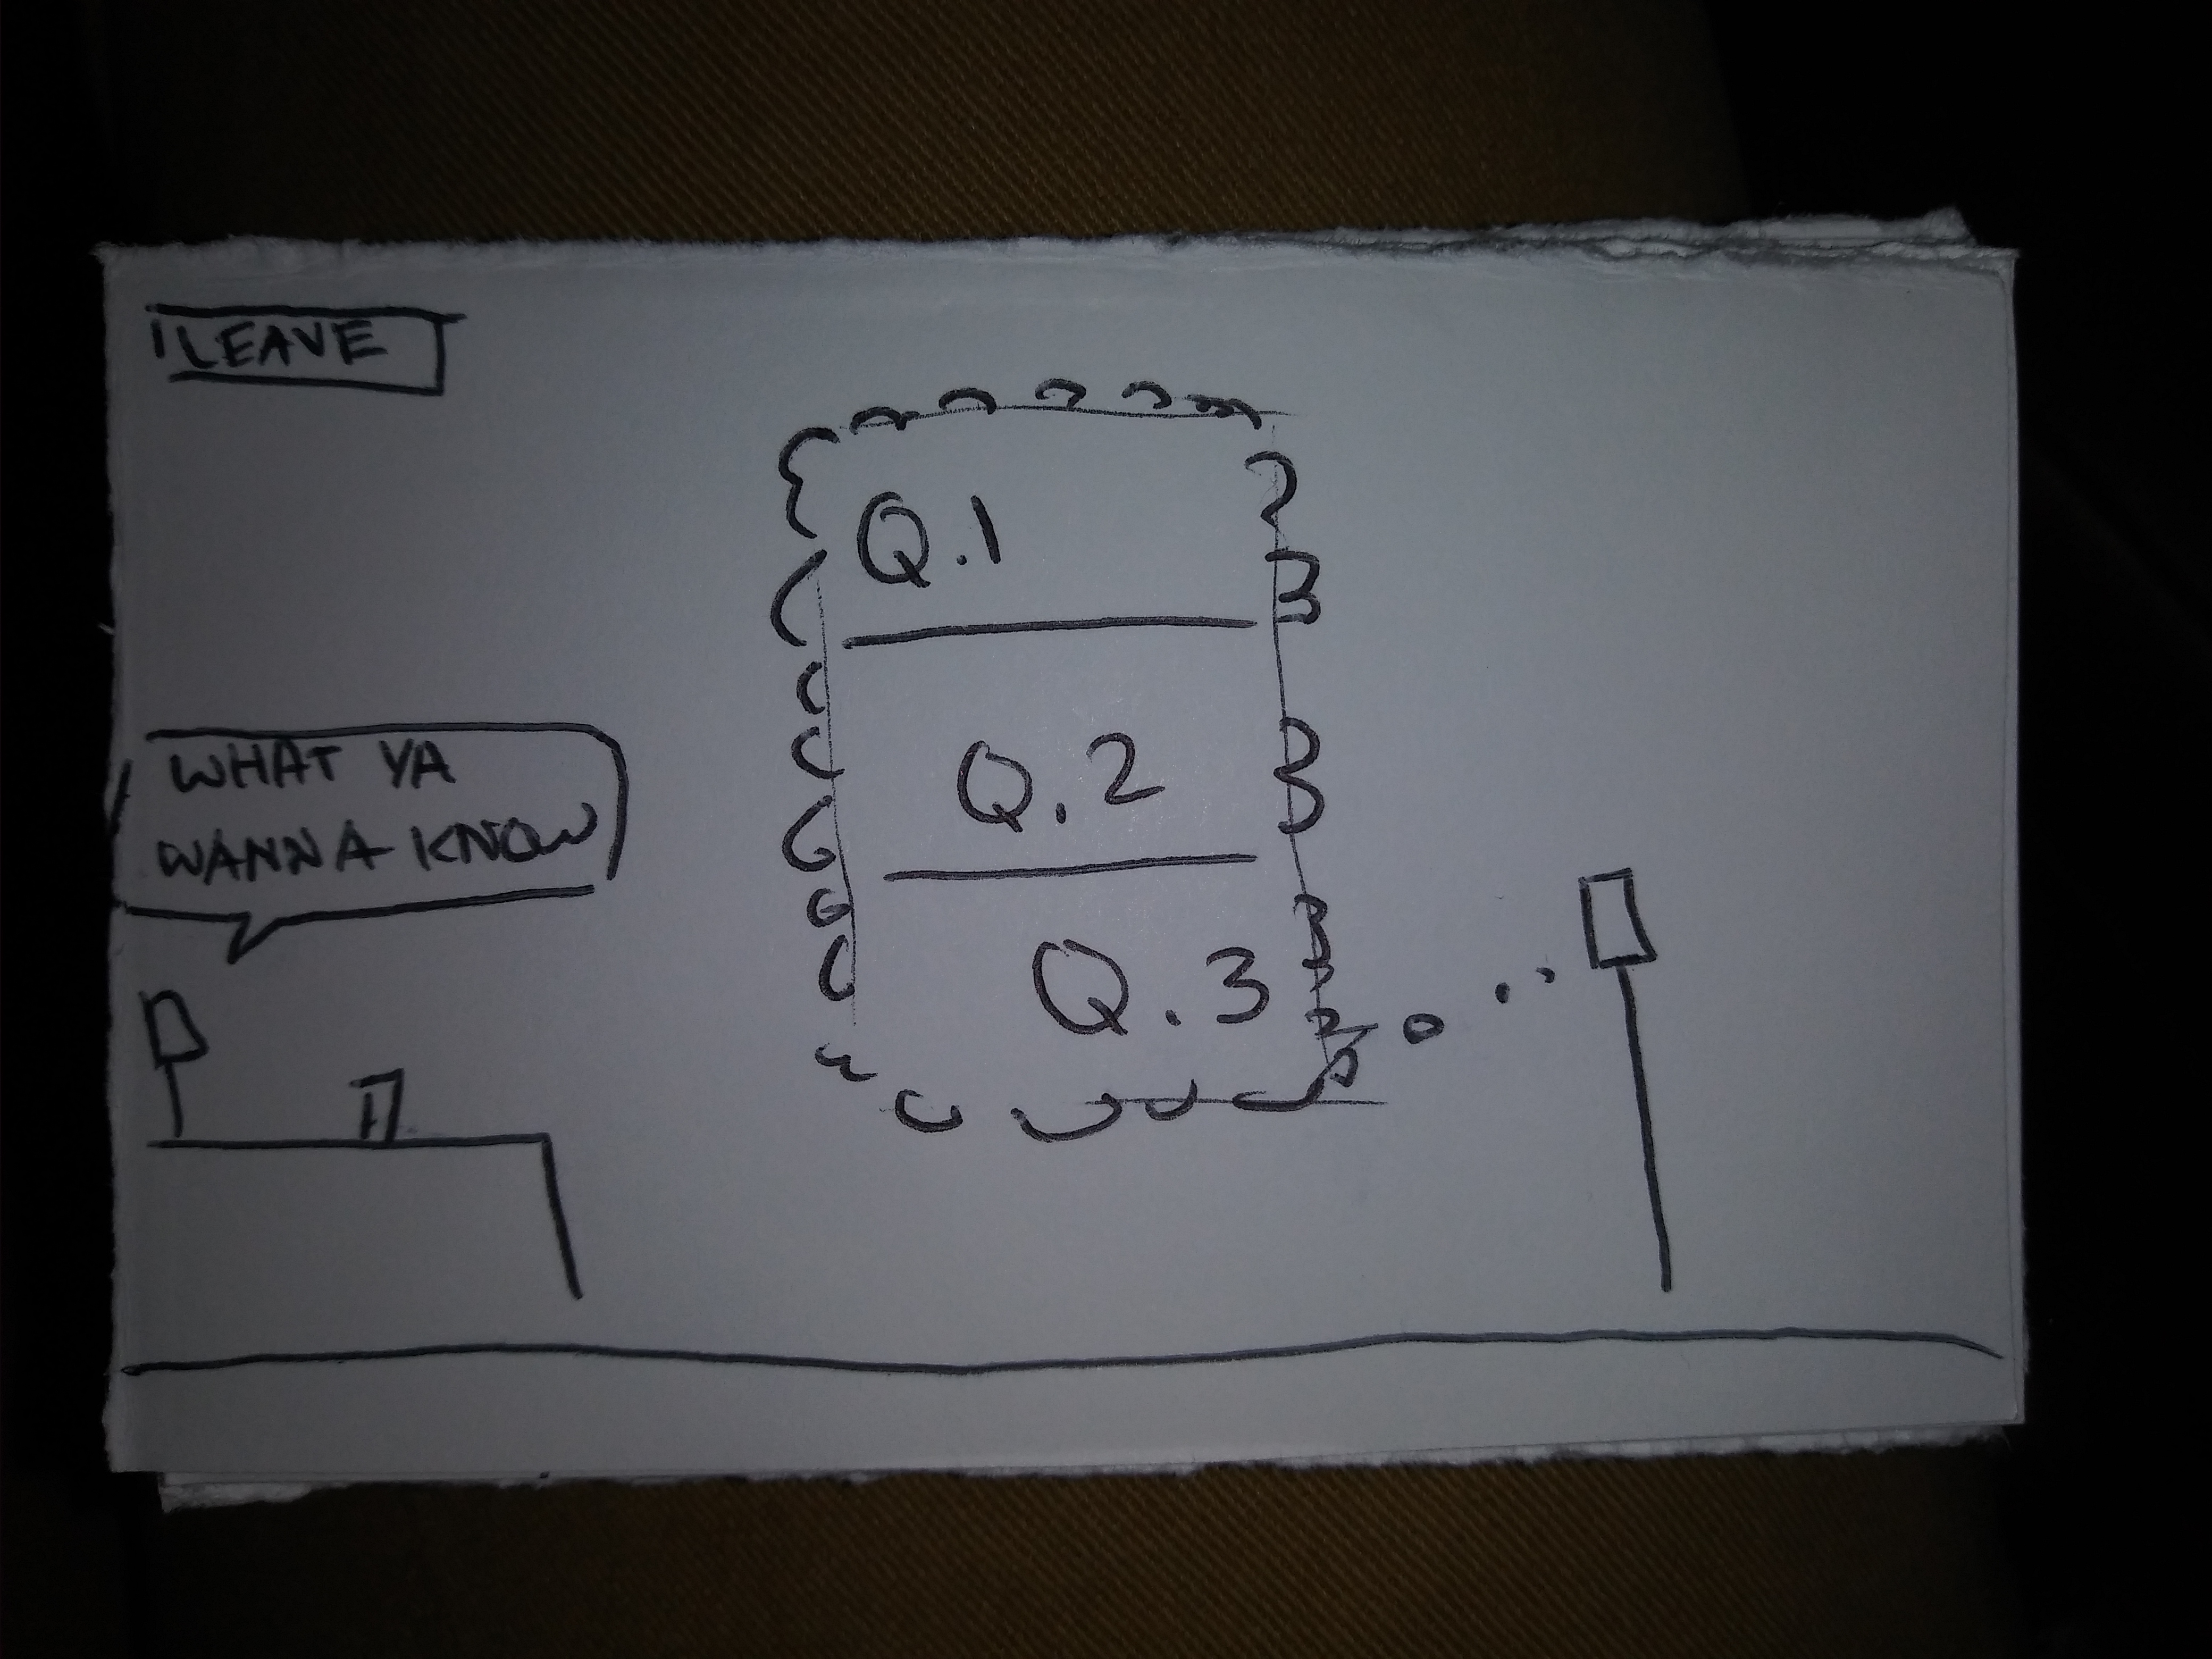 LEAVE
WHAT YA
WANNA KNOW
Q.1
Q.2
Q.3